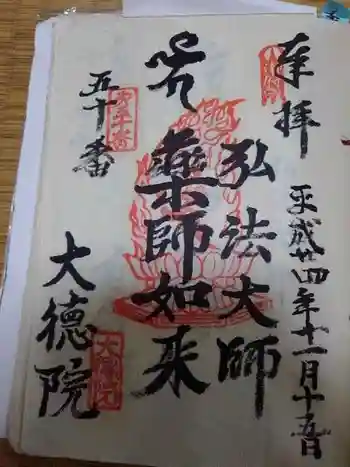 奉拝
平成廿四年十一月十五日
弘法大師
薬師如来
五十番
大徳院
大徳院